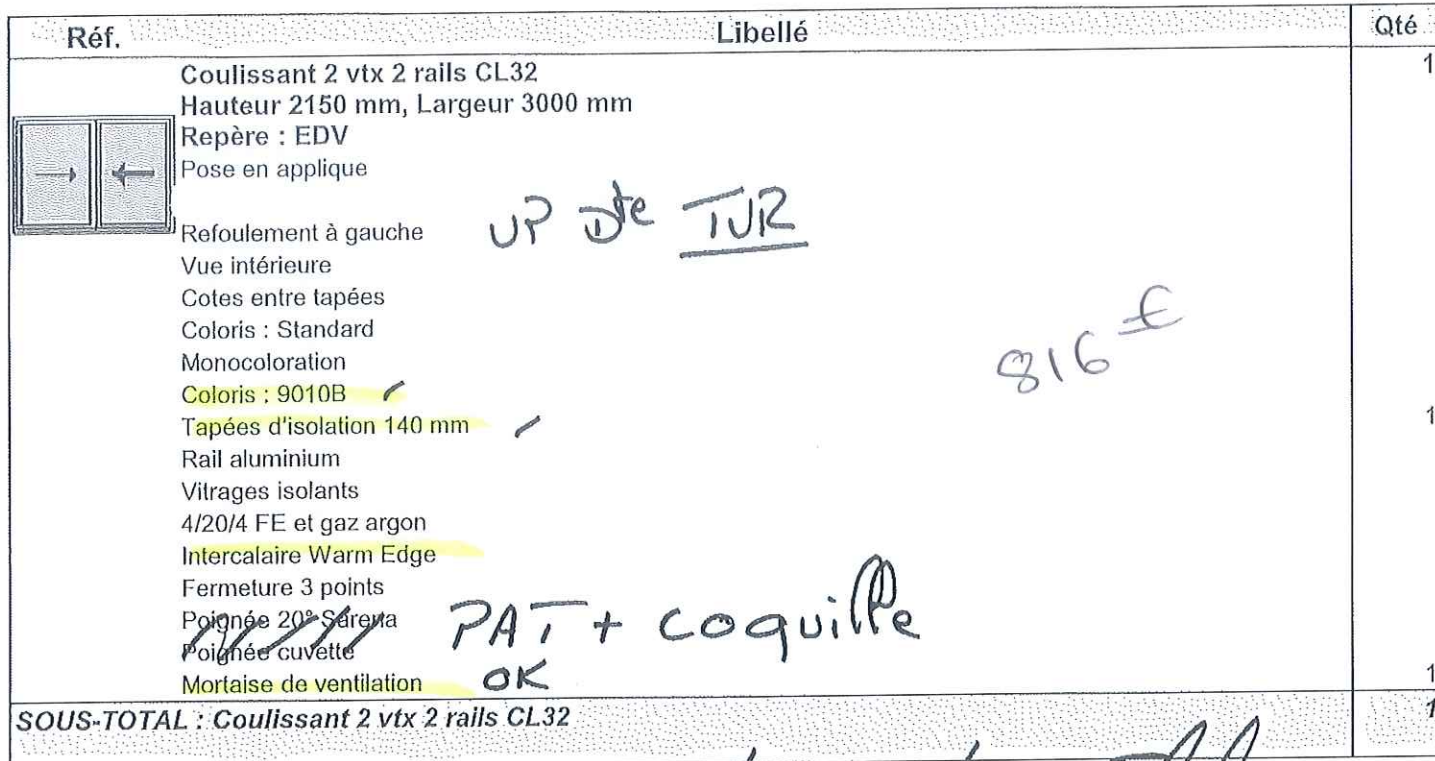 Réf. Libellé Qté
Coulissant 2 vtx 2 rails CL32 1
Hauteur 2150 mm, Largeur 3000 mm
Repère : EDV
Pose en applique
Refoulement à gauche UP Dte TUR
Vue intérieure
Cotes entre tapées
Coloris : Standard
816 €
Monocoloration
Coloris : 9010B
Tapées d'isolation 140 mm 1
Rail aluminium
Vitrages isolants
4/20/4 FE et gaz argon
Intercalaire Warm Edge
Fermeture 3 points
Poignée 20° Sarena PAT + coquille
Poignée cuvette
Mortaise de ventilation OK 1
SOUS-TOTAL : Coulissant 2 vtx 2 rails CL32 1